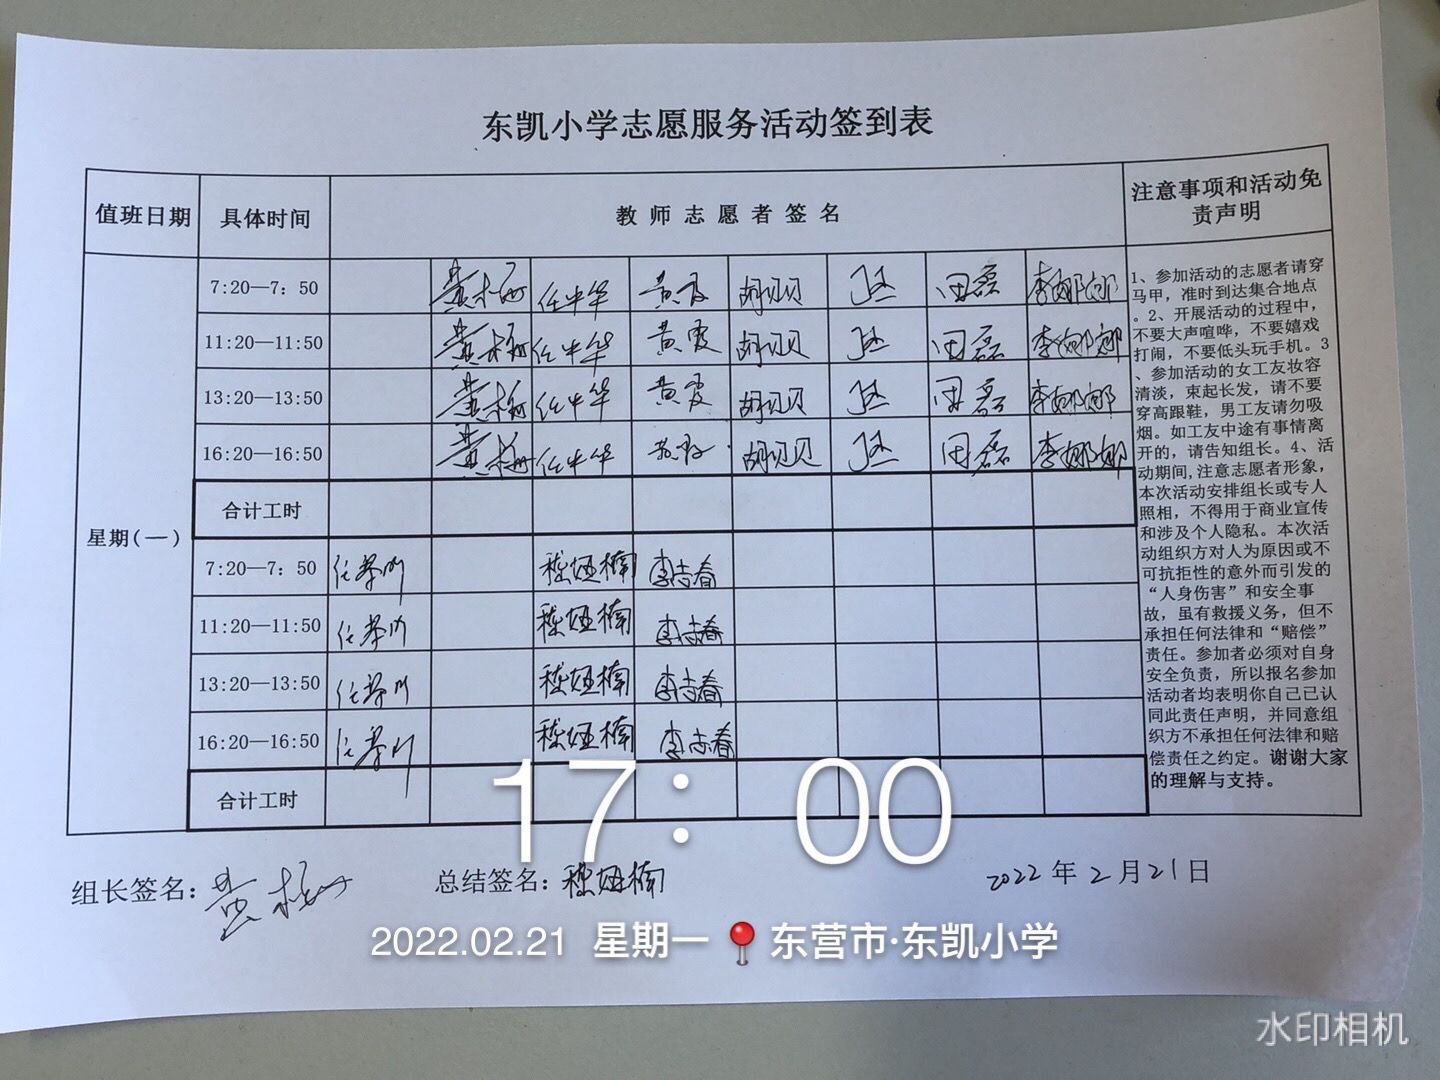 东凯小学志愿服务活动签到表
值班日期 具体时间 教师志愿者签名 注意事项和活动免
责声明
7:20—7：50 黄梅 任中华 黄霞 胡贝贝 田磊 李娜娜
11:20—11:50 黄梅 任中华 黄霞 胡贝贝 田磊 李娜娜
13:20—13:50 黄梅 任中华 黄霞 胡贝贝 田磊 李娜娜
16:20—16:50 黄梅 任中华 黄霞 胡贝贝 田磊 李娜娜
合计工时
星期(一)
7:20—7：50 李志春
11:20—11:50 李志春
13:20—13:50 李志春
16:20—16:50 李志春
合计工时
1、参加活动的志愿者请穿
马甲，准时到达集合地点
。2、开展活动的过程中，
不要大声喧哗，不要嬉戏
打闹，不要低头玩手机。3
、参加活动的女工友妆容
清淡，束起长发，请不要
穿高跟鞋，男工友请勿吸
烟。如工友中途有事情离
开的，请告知组长。4、活
动期间,注意志愿者形象，
本次活动安排组长或专人
照相，不得用于商业宣传
和涉及个人隐私。本次活
动组织方对人为原因或不
可抗拒性的意外而引发的
“人身伤害”和安全事
故，虽有救援义务，但不
承担任何法律和“赔偿”
责任。参加者必须对自身
安全负责，所以报名参加
活动者均表明你自己已认
同此责任声明，并同意组
织方不承担任何法律和赔
偿责任之约定。谢谢大家
的理解与支持。
17：00
组长签名：黄梅 总结签名： 2022年2月21日
2022.02.21 星期一 东营市·东凯小学
水印相机